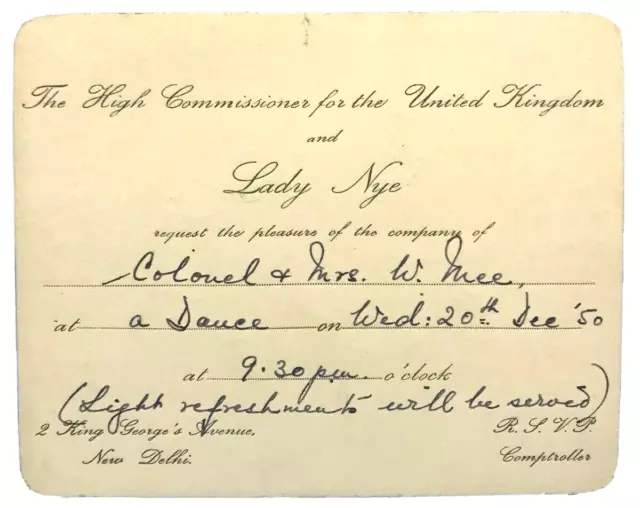 The High Commissioner for the United Kingdom
and
Lady Nye
request the pleasure of the company of
Colonel & Mrs. W. Mee,
at a Dance on Wed: 20th Dec '50
at 9.30 p.m. o'clock
(Light refreshments will be served)
2 King George's Avenue, R. S. V. P.
New Delhi. Comptroller